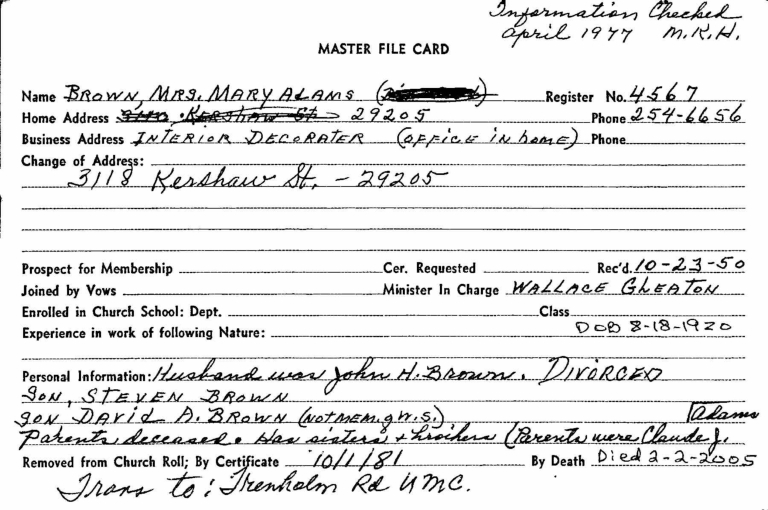 Information Checked
April 1977 M.K.H.
MASTER FILE CARD
Name BROWN, MRS. MARY ADAMS ( ) Register No. 4567
Home Address Kershaw St 29205 Phone 254-6656
Business Address INTERIOR DECORATER (OFFICE in home) Phone
Change of Address:
3118 Kershaw St. - 29205
Prospect for Membership Cer. Requested Rec'd. 10-23-50
Joined by Vows Minister In Charge WALLACE GLEATON
Enrolled in Church School: Dept. Class
Experience in work of following Nature: DOB 8-18-1920
Personal Information: Husband was John H. Brown. DIVORCED
Son, STEVEN BROWN
Son DAVID A. BROWN (NOT MEM. of W.S.) Adams
Parents deceased. Has sisters & brothers (Parents were Claude J.
Removed from Church Roll; By Certificate 10/1/81 By Death Died 2-2-2005
Trans to: Trenholm Rd UMC.